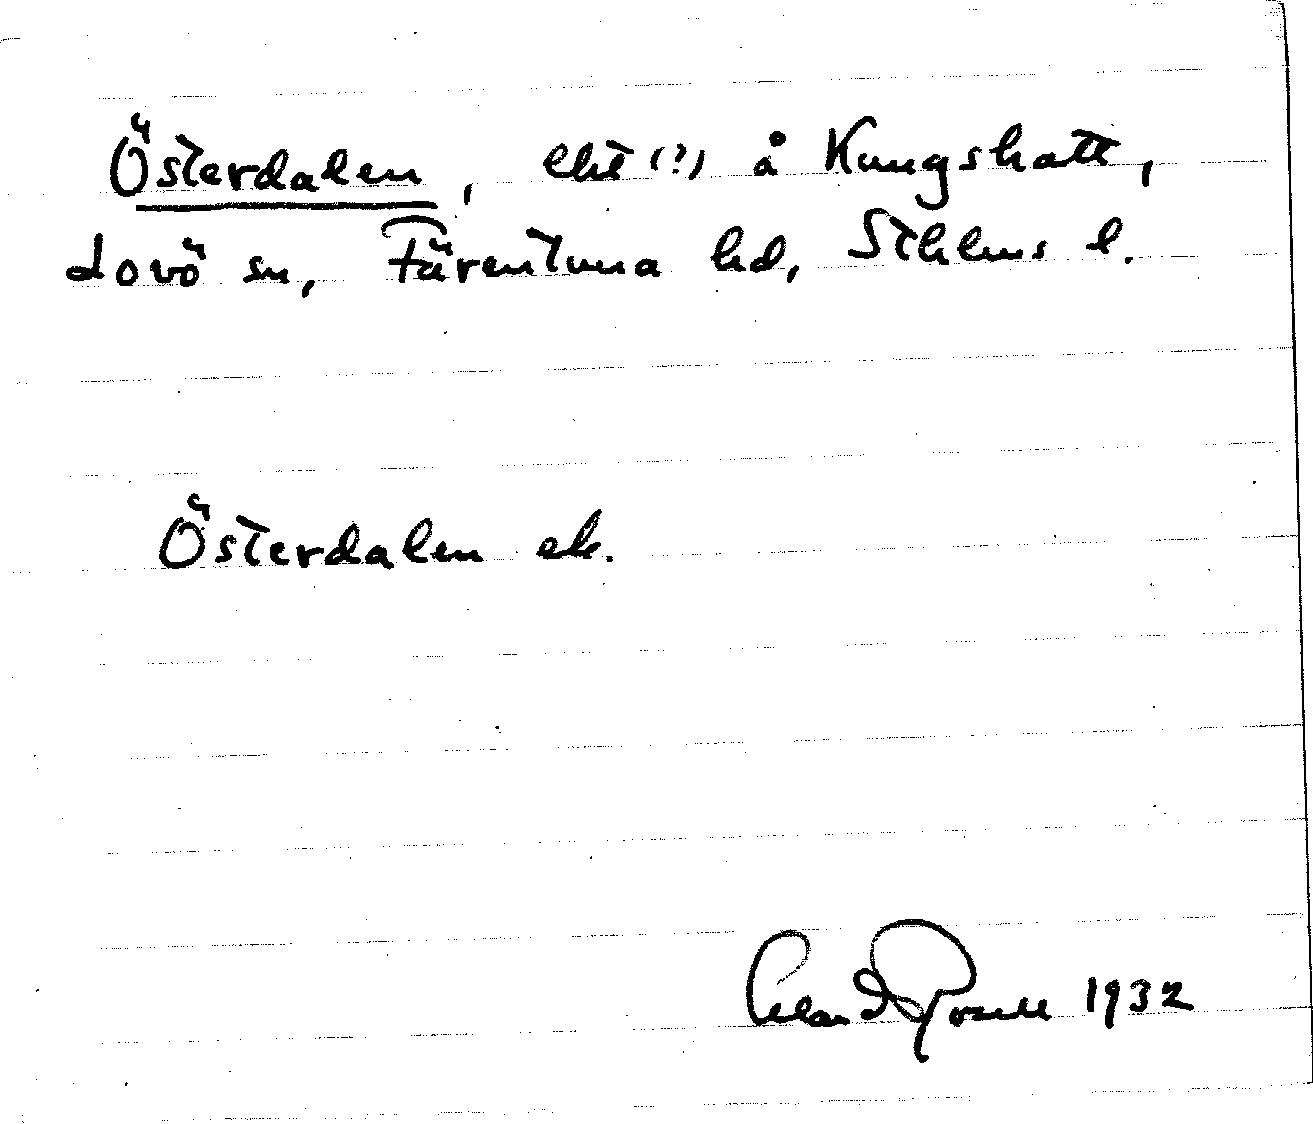 Österdalen, lht (?) å Kungshatt,
Lovö sn, Färentuna hd, Sthlms l.
Österdalen ek.
Erland Rosell 1932